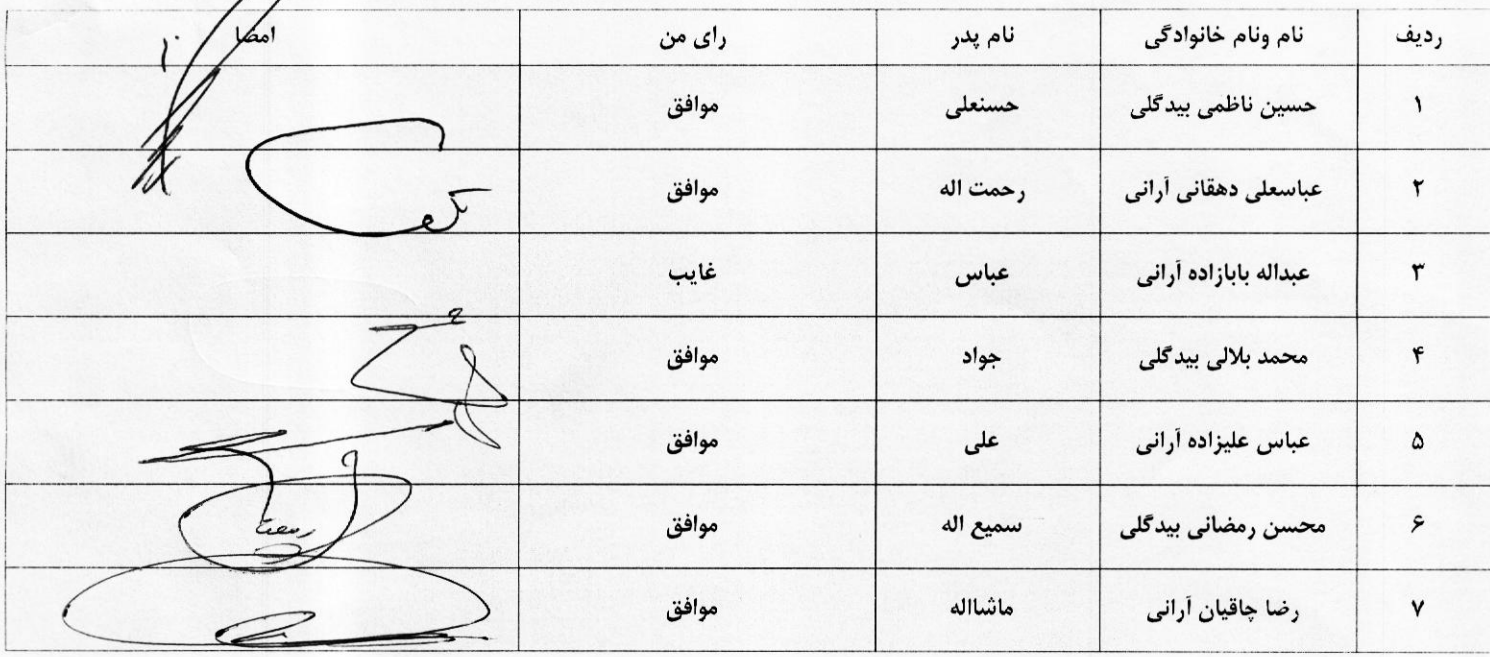 ردیف نام ونام خانوادگی نام پدر رای من امضا
۱ حسین ناظمی بیدگلی حسنعلی موافق
۲ عباسعلی دهقانی آرانی رحمت اله موافق
۳ عبداله بابازاده آرانی عباس غایب
۴ محمد بلالی بیدگلی جواد موافق
۵ عباس علیزاده آرانی علی موافق
۶ محسن رمضانی بیدگلی سمیع اله موافق
۷ رضا چاقیان آرانی ماشااله موافق